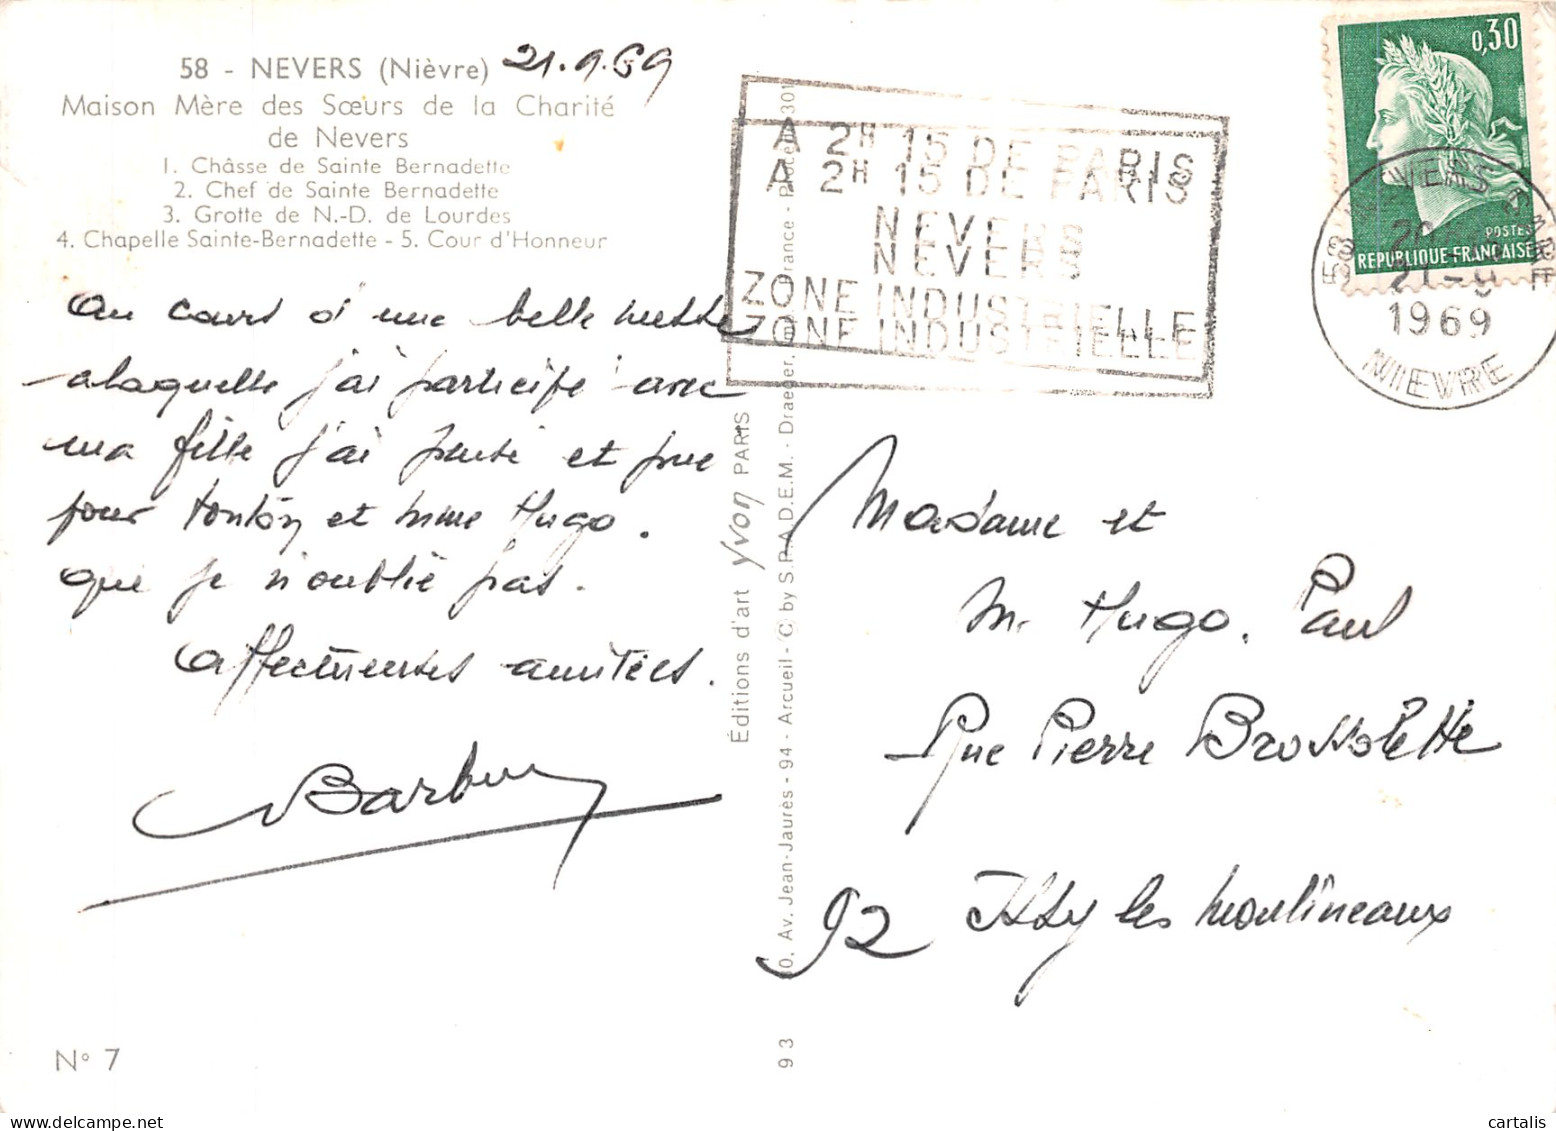 58 - NEVERS (Nièvre) 21.9.69
Maison Mère des Sœurs de la Charité
de Nevers
1. Châsse de Sainte Bernadette
2. Chef de Sainte Bernadette
3. Grotte de N.-D. de Lourdes
4. Chapelle Sainte-Bernadette - 5. Cour d'Honneur
Au cours d'une belle messe
a laquelle j'ai participé avec
ma fille j'ai pensé et prié
pour tonton et Mme Hugo.
que je n'oublie pas.
affectueuses amitiés.
N° 7
Éditions d'art yvon PARIS
10, Av. Jean-Jaurès - 94 - Arcueil - © by S.P.A.D.E.M. - Draeger,
93
A 2H 15 DE PARIS
A 2H 15 DE PARIS
NEVERS
NEVERS
ZONE INDUSTRIELLE
ZONE INDUSTRIELLE
0,30
POSTES
REPUBLIQUE FRANÇAISE
58 NEVERS
21-9
1969
NIEVRE
Madame et
M. Hugo. Paul
Rue Pierre Brossolette
92 Issy les Moulineaux
cartalis